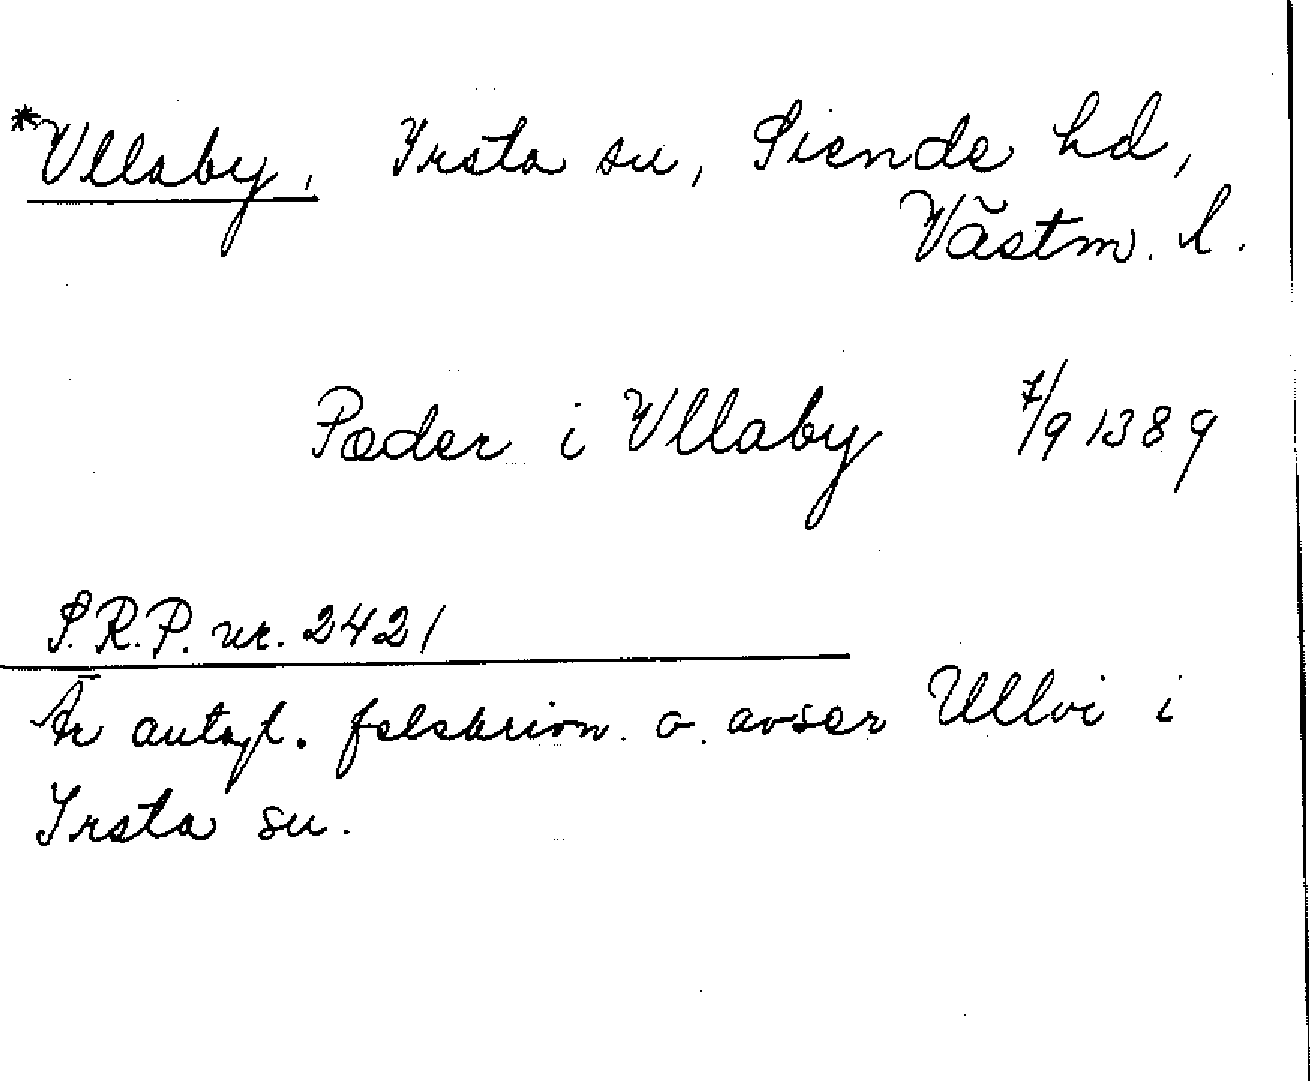 *Vllaby, Irsta sn, Siende hd,
Västm. l.
Pæder i Vllaby 7/9 1389
S.R.P. nr. 2421
Är antagl. felskrivn. o. avser Ullvi i
Irsta sn.